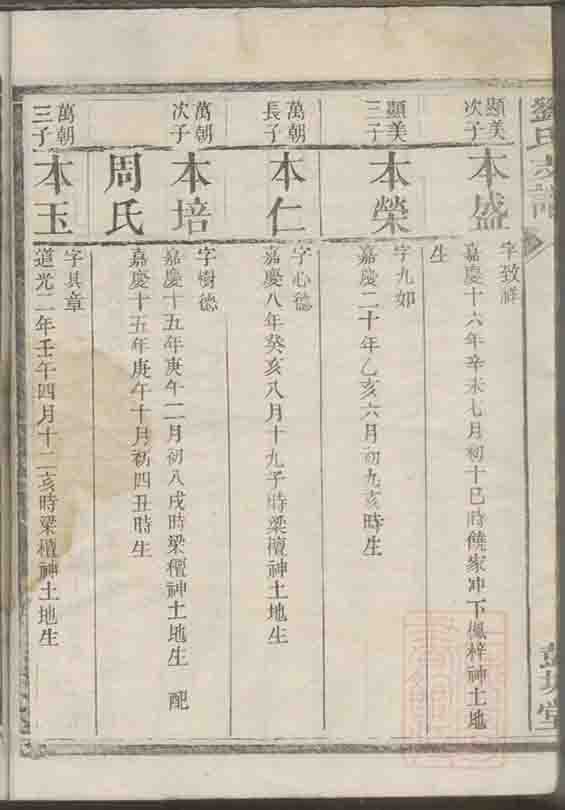 劉氏宗譜
彭城堂
顯美
次子
本盛
字致祥
嘉慶十六年辛未七月初十巳時饒家冲下楓梓神土地
生
顯美
三子
本榮
字九如
嘉慶二十年乙亥六月初九亥時生
萬朝
長子
本仁
字心德
嘉慶八年癸亥八月十九子時梁檀神土地生
萬朝
次子
本培
字樹德
嘉慶十五年庚午二月初八戌時梁檀神土地生 配
周氏
嘉慶十五年庚午十月初四丑時生
萬朝
三子
本玉
字其章
道光二年壬午四月十二亥時梁檀神土地生